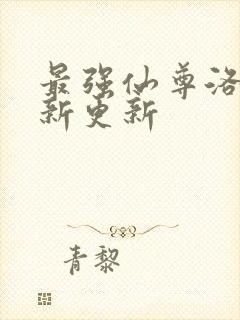 最强仙尊洛
新更新
青黎